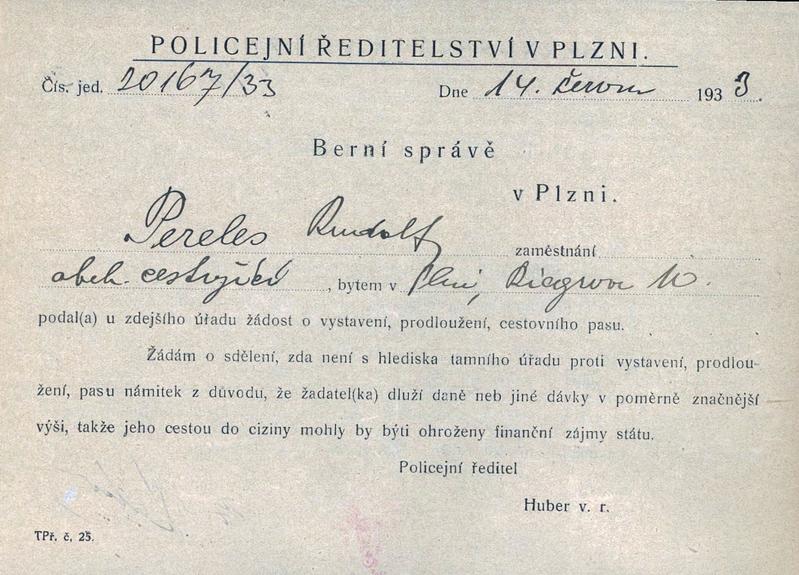 POLICEJNÍ ŘEDITELSTVÍ V PLZNI.
Čís. jed. 20167/33 Dne 14. červn 1933.
Berní správě
v Plzni.
Pereles Rudolf zaměstnání
obch. cestující, bytem v Plzni, Riegrova
podal(a) u zdejšího úřadu žádost o vystavení, prodloužení, cestovního pasu.
Žádám o sdělení, zda není s hlediska tamního úřadu proti vystavení, prodlou-
žení, pasu námitek z důvodu, že žadatel(ka) dluží daně neb jiné dávky v poměrně značnější
výši, takže jeho cestou do ciziny mohly by býti ohroženy finanční zájmy státu.
Policejní ředitel
Huber v. r.
TPř. č, 25.